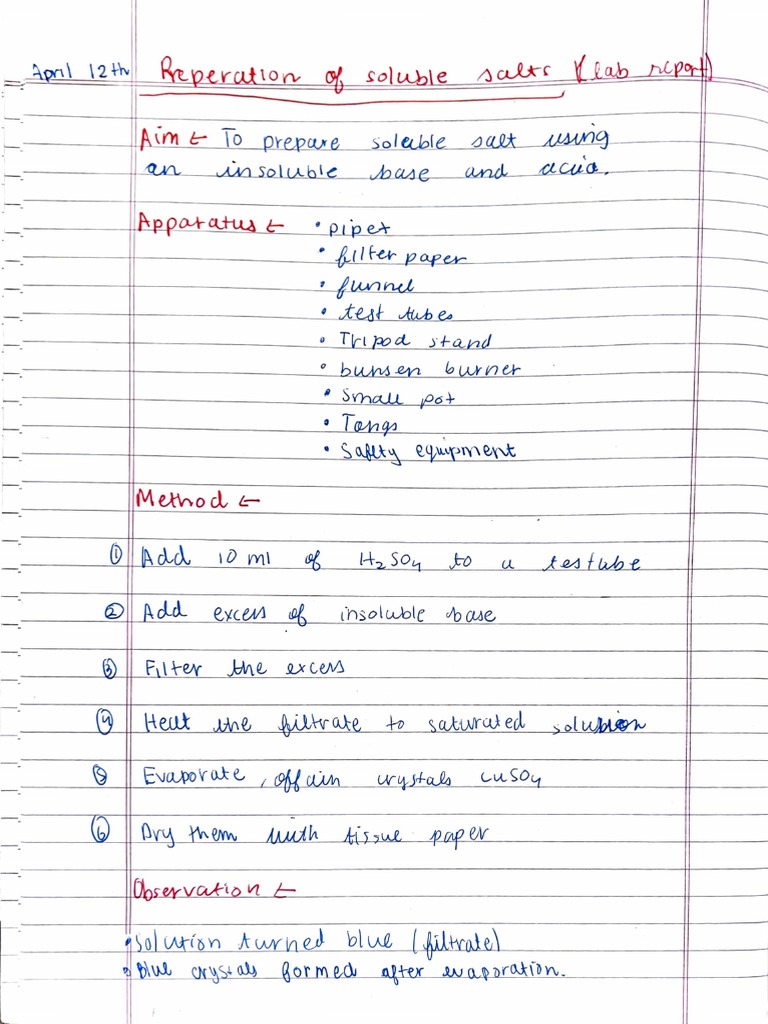 April 12th Preperation of soluble salts (lab report)
Aim ← To prepare soluble salt using
an insoluble base and acid.
Apparatus ← • pipet
• filter paper
• funnel
• test tubes
• Tripod stand
• bunsen burner
• Small pot
• Tongs
• Safety equipment
Method ←
① Add 10 ml of H₂SO₄ to a testube
② Add excess of insoluble base
③ Filter the excess
④ Heat the filtrate to saturated solution
⑤ Evaporate, offain crystals CuSO₄
⑥ Dry them with tissue paper
Observation ←
• Solution turned blue (filtrate)
• Blue crystals formed after evaporation.